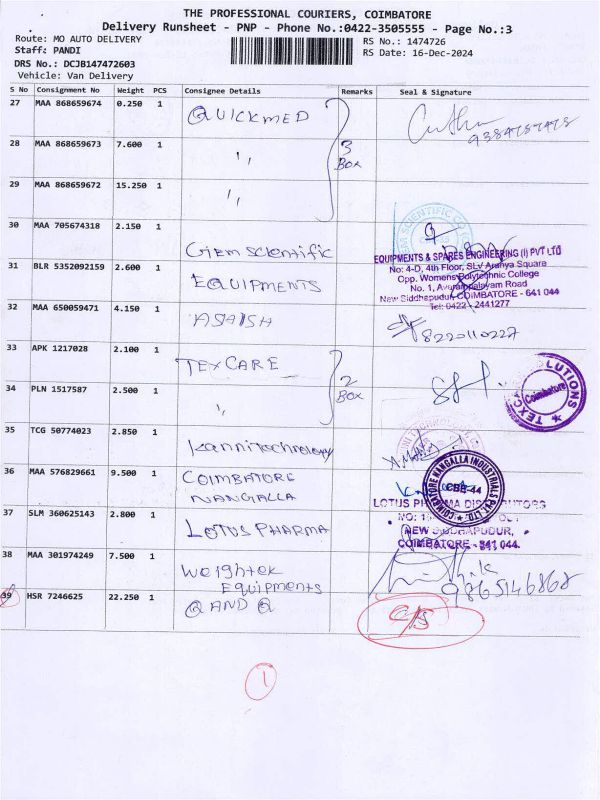 THE PROFESSIONAL COURIERS, COIMBATORE
Delivery Runsheet - PNP - Phone No.:0422-3505555 - Page No.:3
Route: MO AUTO DELIVERY
RS No.: 1474726
Staff: PANDI
RS Date: 16-Dec-2024
DRS No.: DCJB147472603
Vehicle: Van Delivery
S No Consignment No Weight PCS Consignee Details Remarks Seal & Signature
27 MAA 868659674 0.250 1 QUICKMED
9384757475
28 MAA 868659673 7.600 1 ,, 3 Box
29 MAA 868659672 15.250 1 ,,
30 MAA 705674318 2.150 1 Gem Scientific
31 BLR 5352092159 2.600 1 EQUIPMENTS
EQUIPMENTS & SPARES ENGINEERING (I) PVT LTD
No: 4-D, 4th Floor, SLV Aranya Square
Opp. Womens Polytechnic College
No. 1, Avarampalayam Road
New Siddhapudur, COIMBATORE - 641 044
Tel: 0422 - 2441277
32 MAA 650059471 4.150 1 ASHISH
8220110227
33 APK 1217028 2.100 1 TEXCARE
34 PLN 1517587 2.500 1 ,, 2 Box
Coimbatore
35 TCG 50774023 2.850 1 Kanni technology
36 MAA 576829661 9.500 1 COIMBATORE
NANGALLA
COIMBATORE NANGALLA INDUSTRIALS PVT LTD.
CBE-44
37 SLM 360625143 2.800 1 LOTUS PHARMA
LOTUS PHARMA DISTRIBUTORS
NEW SIDDHAPUDUR,
COIMBATORE - 641 044.
38 MAA 301974249 7.500 1 Weightek
Equipments
9865146868
39 HSR 7246625 22.250 1 Q AND Q
C/S
1